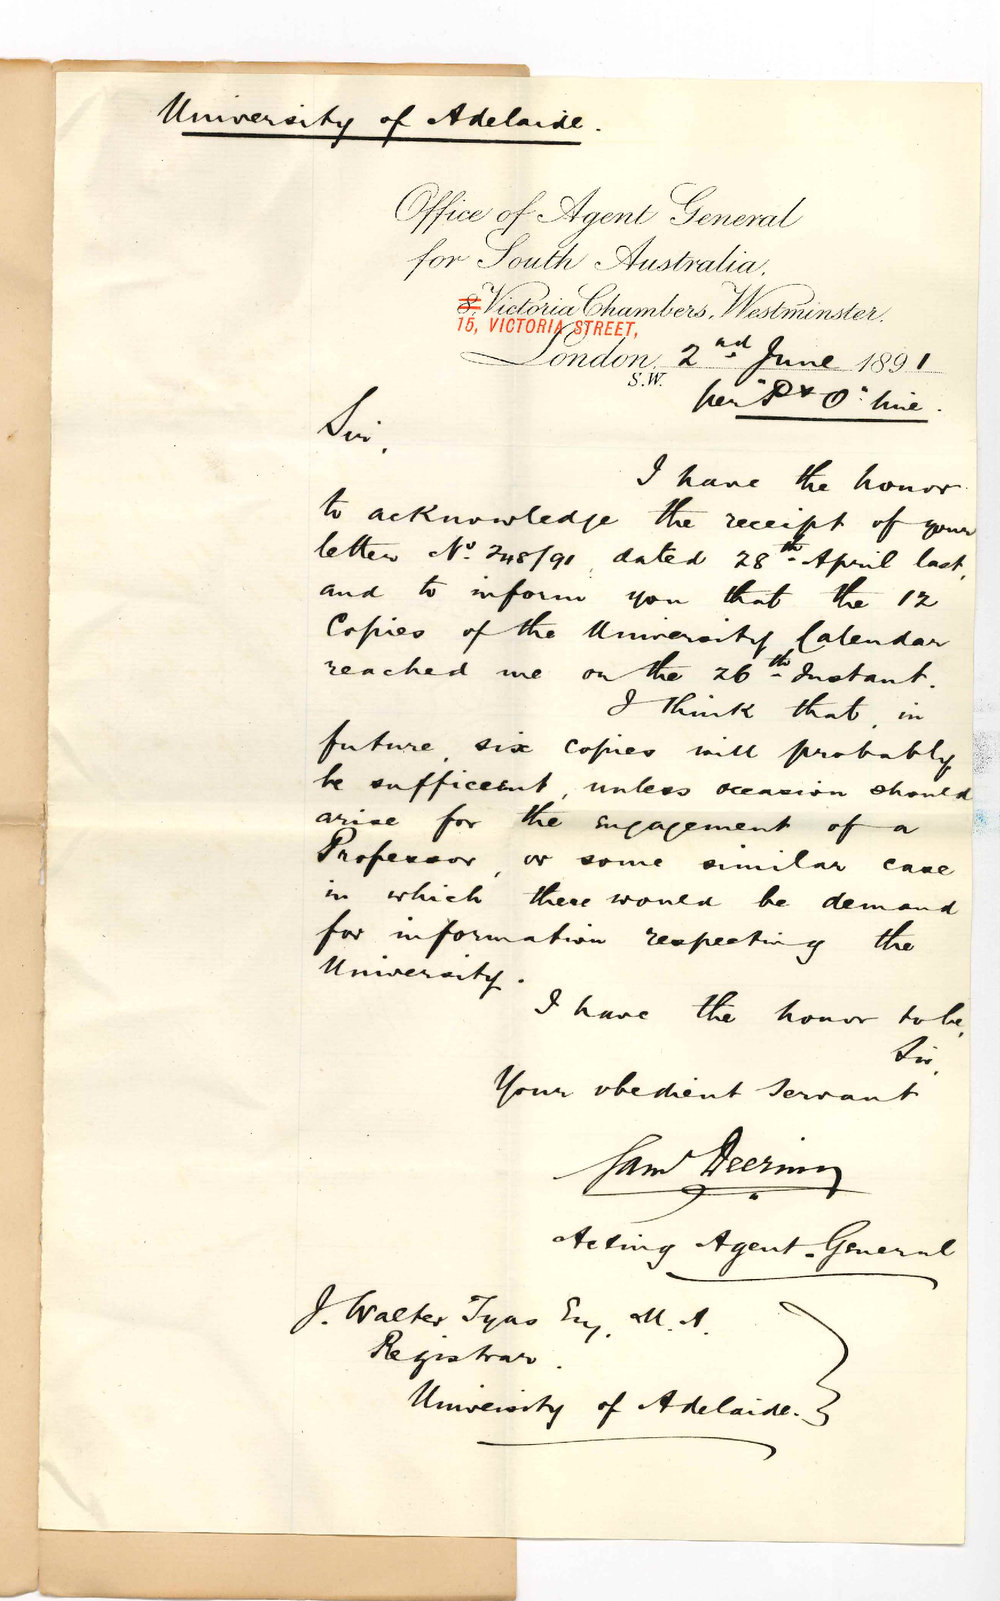 University of Adelaide.
Office of Agent General
for South Australia,
8, Victoria Chambers, Westminster.
15, VICTORIA STREET,
London, 2nd June 1891
S.W.
per "P & O" line.
Sir,
I have the honor
to acknowledge the receipt of your
letter No. 248/91, dated 28th April last,
and to inform you that the 12
Copies of the University Calendar
reached me on the 26th Instant.
I think that, in
future, six copies will probably
be sufficient, unless occasion should
arise for the engagement of a
Professor, or some similar case
in which there would be demand
for information respecting the
University.
I have the honor to be,
Sir,
Your obedient Servant
Saml Deering
Acting Agent-General
J. Walter Tyas Esq. M.A.
Registrar.
University of Adelaide.